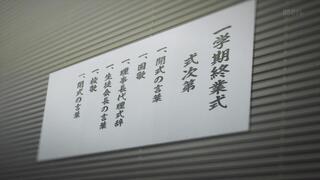 一学期終業式
式次第
一、開式の言葉
一、国歌
一、理事長代理式辞
一、生徒会長の言葉
一、校歌
一、閉式の言葉